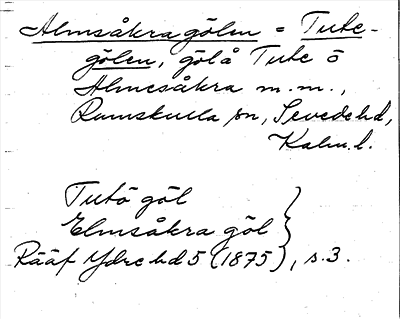 Almsåkragölen = Tute-
gölen, göl å Tute ö
Almesåkra m.m.,
Rumskulla sn, Sevede hd,
Kalm. l.
Tutö göl
Elmsåkra göl
Rääf Ydre hd 5 (1875), s. 3.